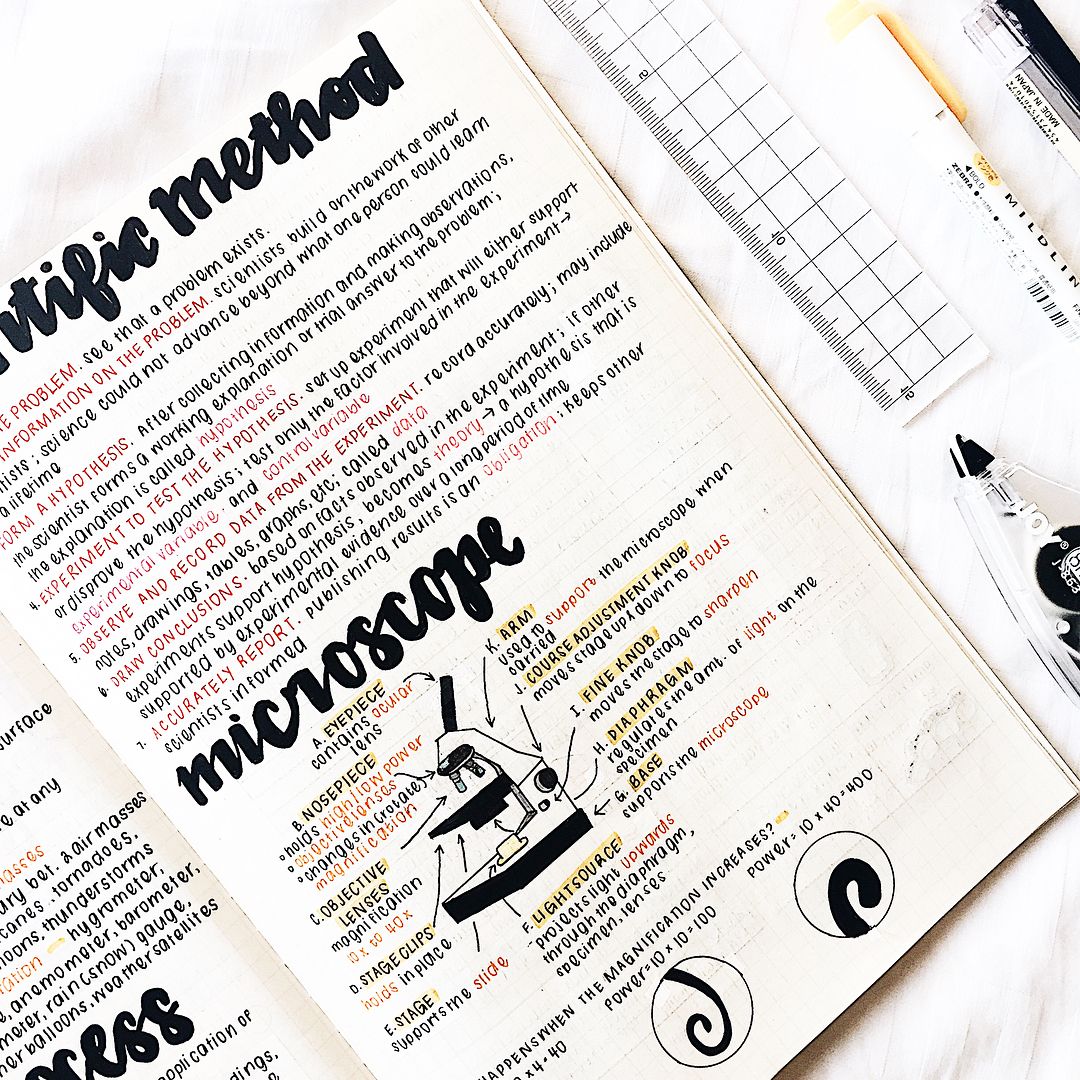 scientific method
PROBLEM. see that a problem exists.
INFORMATION ON THE PROBLEM. scientists build on the work of other
; science could not advance beyond what one person could learn
a lifetime
FORM A HYPOTHESIS. After collecting information and making observations,
the scientist forms a working explanation or trial answer to the problem;
the explanation is called hypothesis
4. EXPERIMENT TO TEST THE HYPOTHESIS. set up experiment that will either support
or disprove the hypothesis; test only the factor involved in the experiment →
experimental variable and control variable
5. OBSERVE AND RECORD DATA FROM THE EXPERIMENT. record accurately; may include
notes, drawings, tables, graphs, etc. called data
6. DRAW CONCLUSIONS. based on facts observed in the experiment; if other
experiments support hypothesis, becomes theory → a hypothesis that is
supported by experimental evidence over a long period of time
7. ACCURATELY REPORT. publishing results is an obligation; keeps other
scientists informed
microscope
A. EYEPIECE
contains ocular
lens
B. NOSEPIECE
holds high/low power
objective lenses
changes in (rotate)
magnification
C. OBJECTIVE
LENSES
magnification
10x to 40x
D. STAGE CLIPS
holds in place
E. STAGE
supports the slide
K. ARM
used to support the microscope when
carried
J. COURSE ADJUSTMENT KNOB
moves stage up & down to focus
I. FINE KNOB
moves the stage to sharpen
H. DIAPHRAGM
regulates the amt. of light on the
specimen
G. BASE
supports the microscope
F. LIGHT SOURCE
projects light upwards
through the diaphragm,
specimen, lenses
HAPPENS WHEN THE MAGNIFICATION INCREASES?
x 4 = 40
POWER = 10 x 10 = 100
POWER = 10 x 40 = 400
surface
at any
masses
bet. 2 air masses
tornadoes,
thunderstorms
hygrometer,
anemometer, barometer,
rain (snow) gauge,
balloons, weather satellites
application of
9
10
14
MADE IN JAPAN
BOLD
ZEBRA
MILDLIN